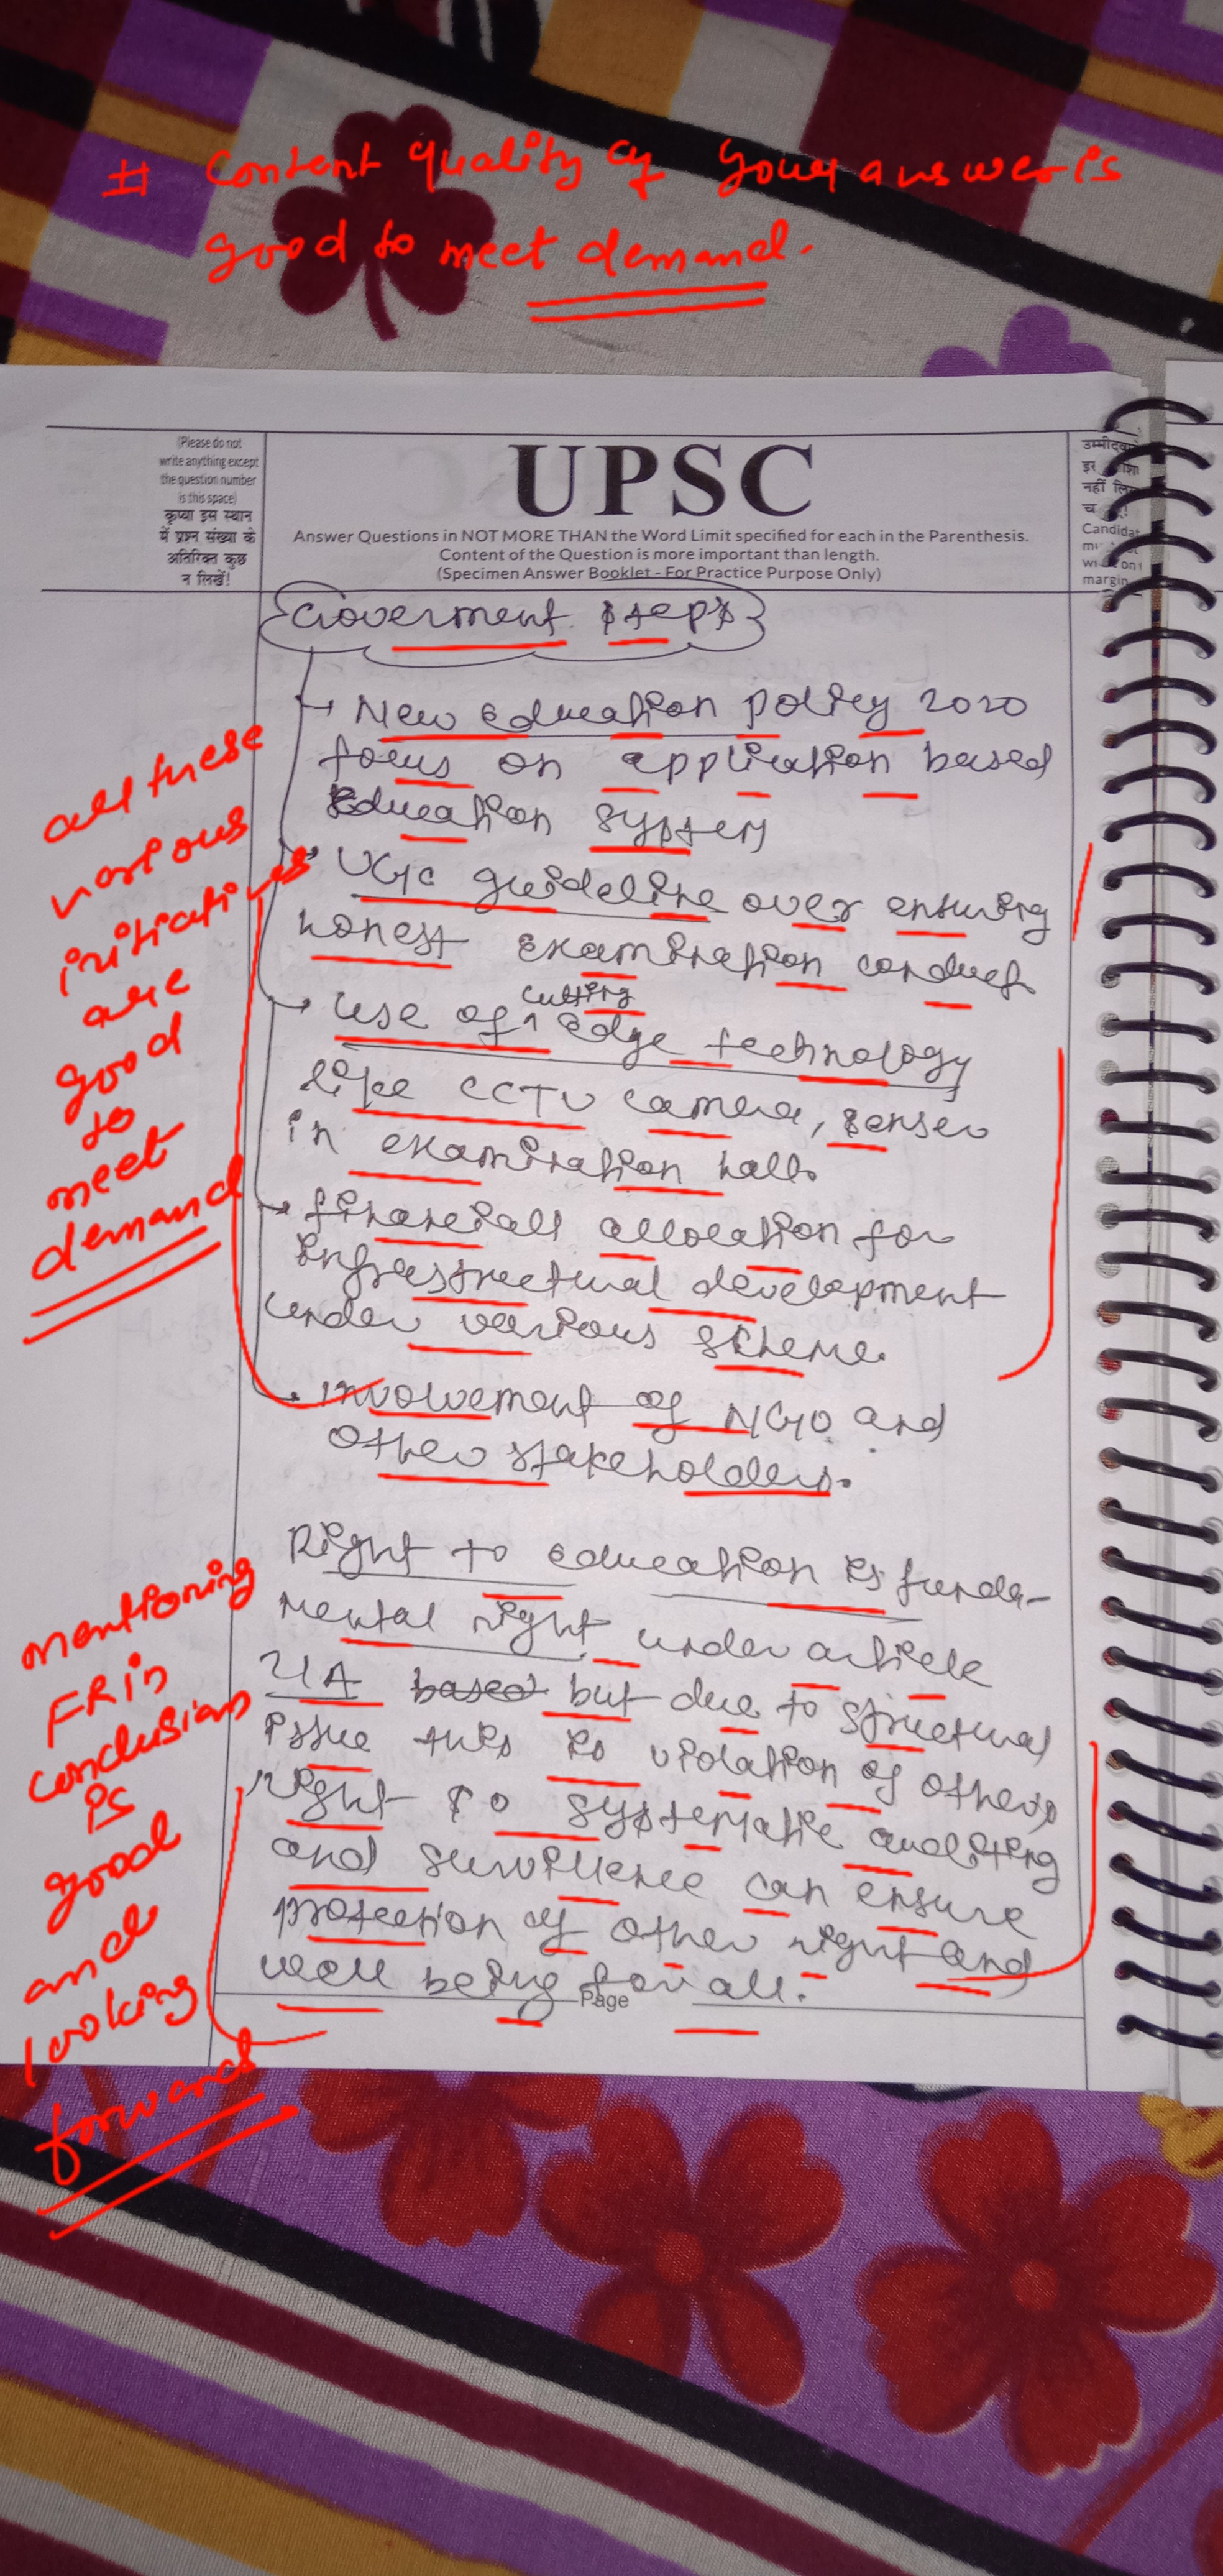 # Content quality of your answer is
good to meet demand.
(Please do not
write anything except
the question number
is this space)
कृप्या इस स्थान
में प्रश्न संख्या के
अतिरिक्त कुछ
न लिखें!
UPSC
Answer Questions in NOT MORE THAN the Word Limit specified for each in the Parenthesis.
Content of the Question is more important than length.
(Specimen Answer Booklet - For Practice Purpose Only)
उम्मीदवा
इस
नहीं लि
Candidat
margin
Goverment steps
→ New Education policy 2020
focus on application based
Education system
→ UGC guideline over ensuring
honest examination conduct.
→ Use of cutting edge technology
like CCTV camera, senser
in examination halls
→ financiall allocation for
infrastructural development
under various scheme.
→ involvement of NGO and
other stakeholders.
Right to education is funda-
mental right under article
21A based but due to structural
issue this is violation of others
right so systematic auditing
and survillence can ensure
protection of other right and
well being for all.
Page
all these
various
initiatives
are
good
to
meet
demand
mentioning
FR in
conclusion
is
good
and
looking
forward